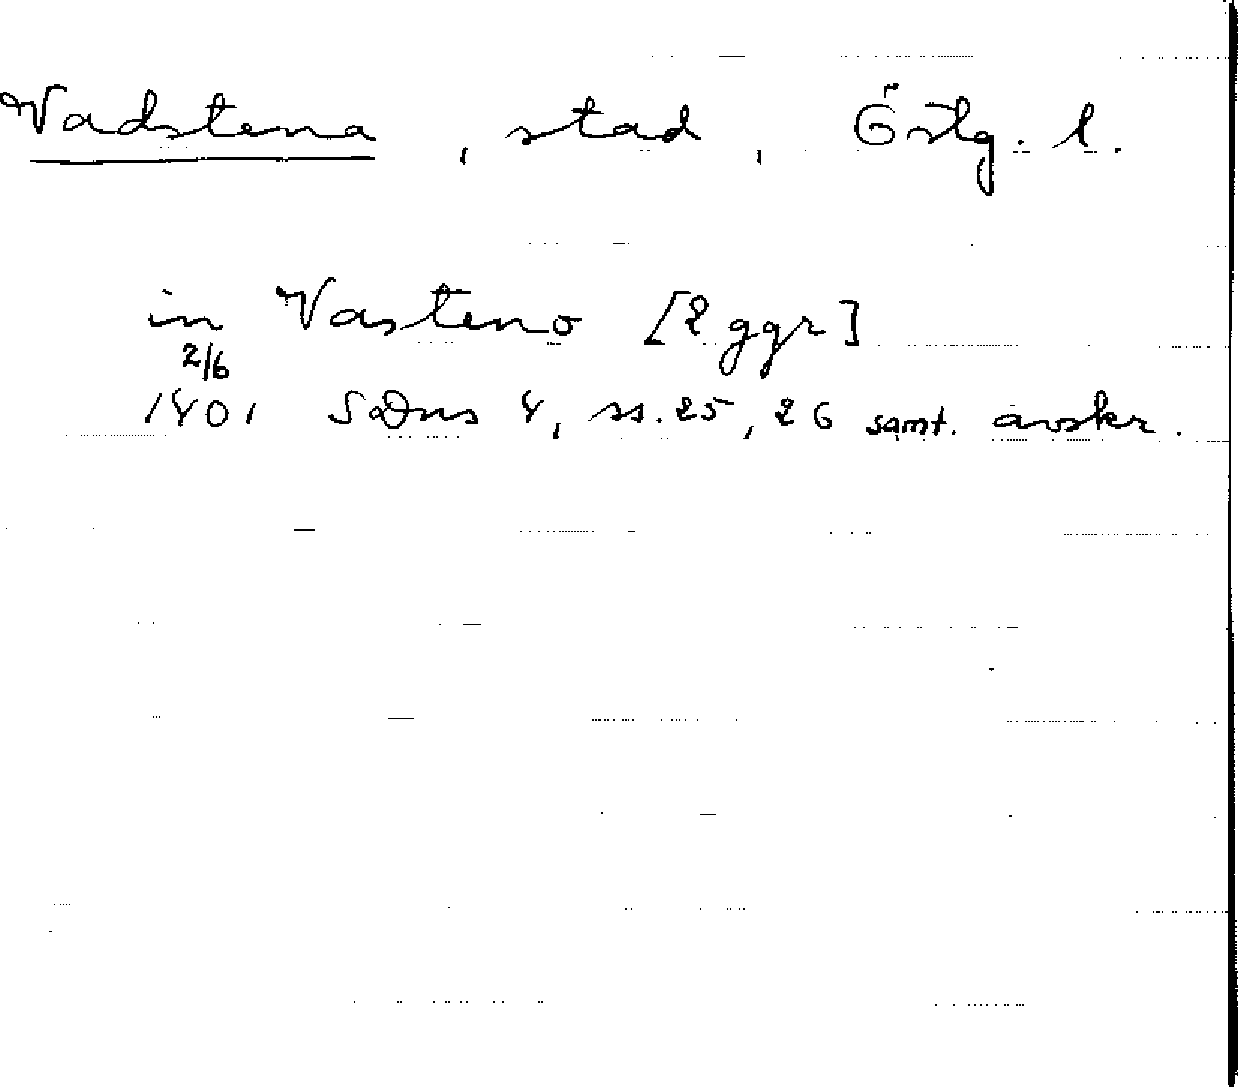 Vadstena, stad, Östg. l.
in Vasteno [2 ggr]
2/6
1401 SDns 4, ss. 25, 26 samt. avskr.